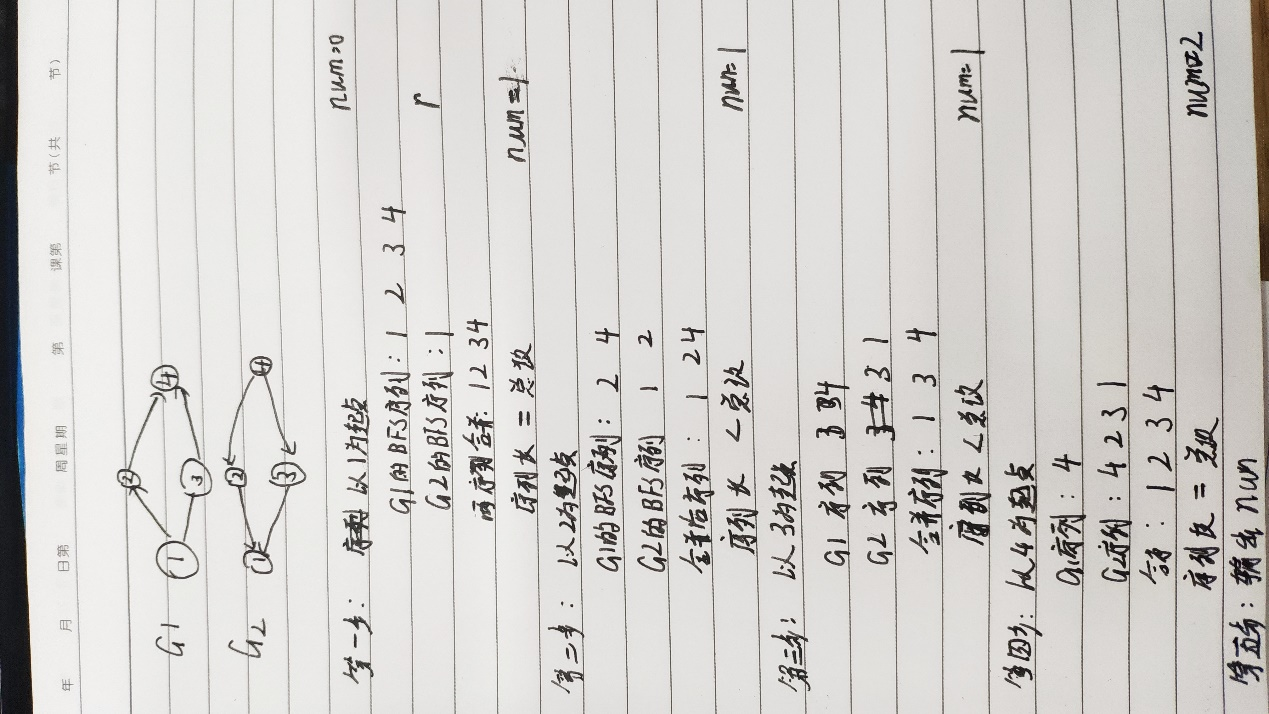 年 月 日第 周星期 第 课第 节(共 节)
G1 1 2 3 4
G2 1 2 3 4
num=0
第一步: 以1为起点
G1的BFS序列: 1 2 3 4 r
G2的BFS序列: 1
两序列合并: 1 2 3 4
序列长 = 总数 num=1
第二步: 以2为起点
G1的BFS序列: 2 4
G2的BFS序列 1 2
合并后序列: 1 2 4
序列长 < 总数 num=1
第三步: 以3为起点
G1 序列 3 4
G2 序列 3 1
合并序列: 1 3 4
序列长 < 总数 num=1
第四步: 以4为起点
G1序列: 4
G2序列: 4 2 3 1
合并: 1 2 3 4
序列长 = 总数 num=2
第五步: 输出 num